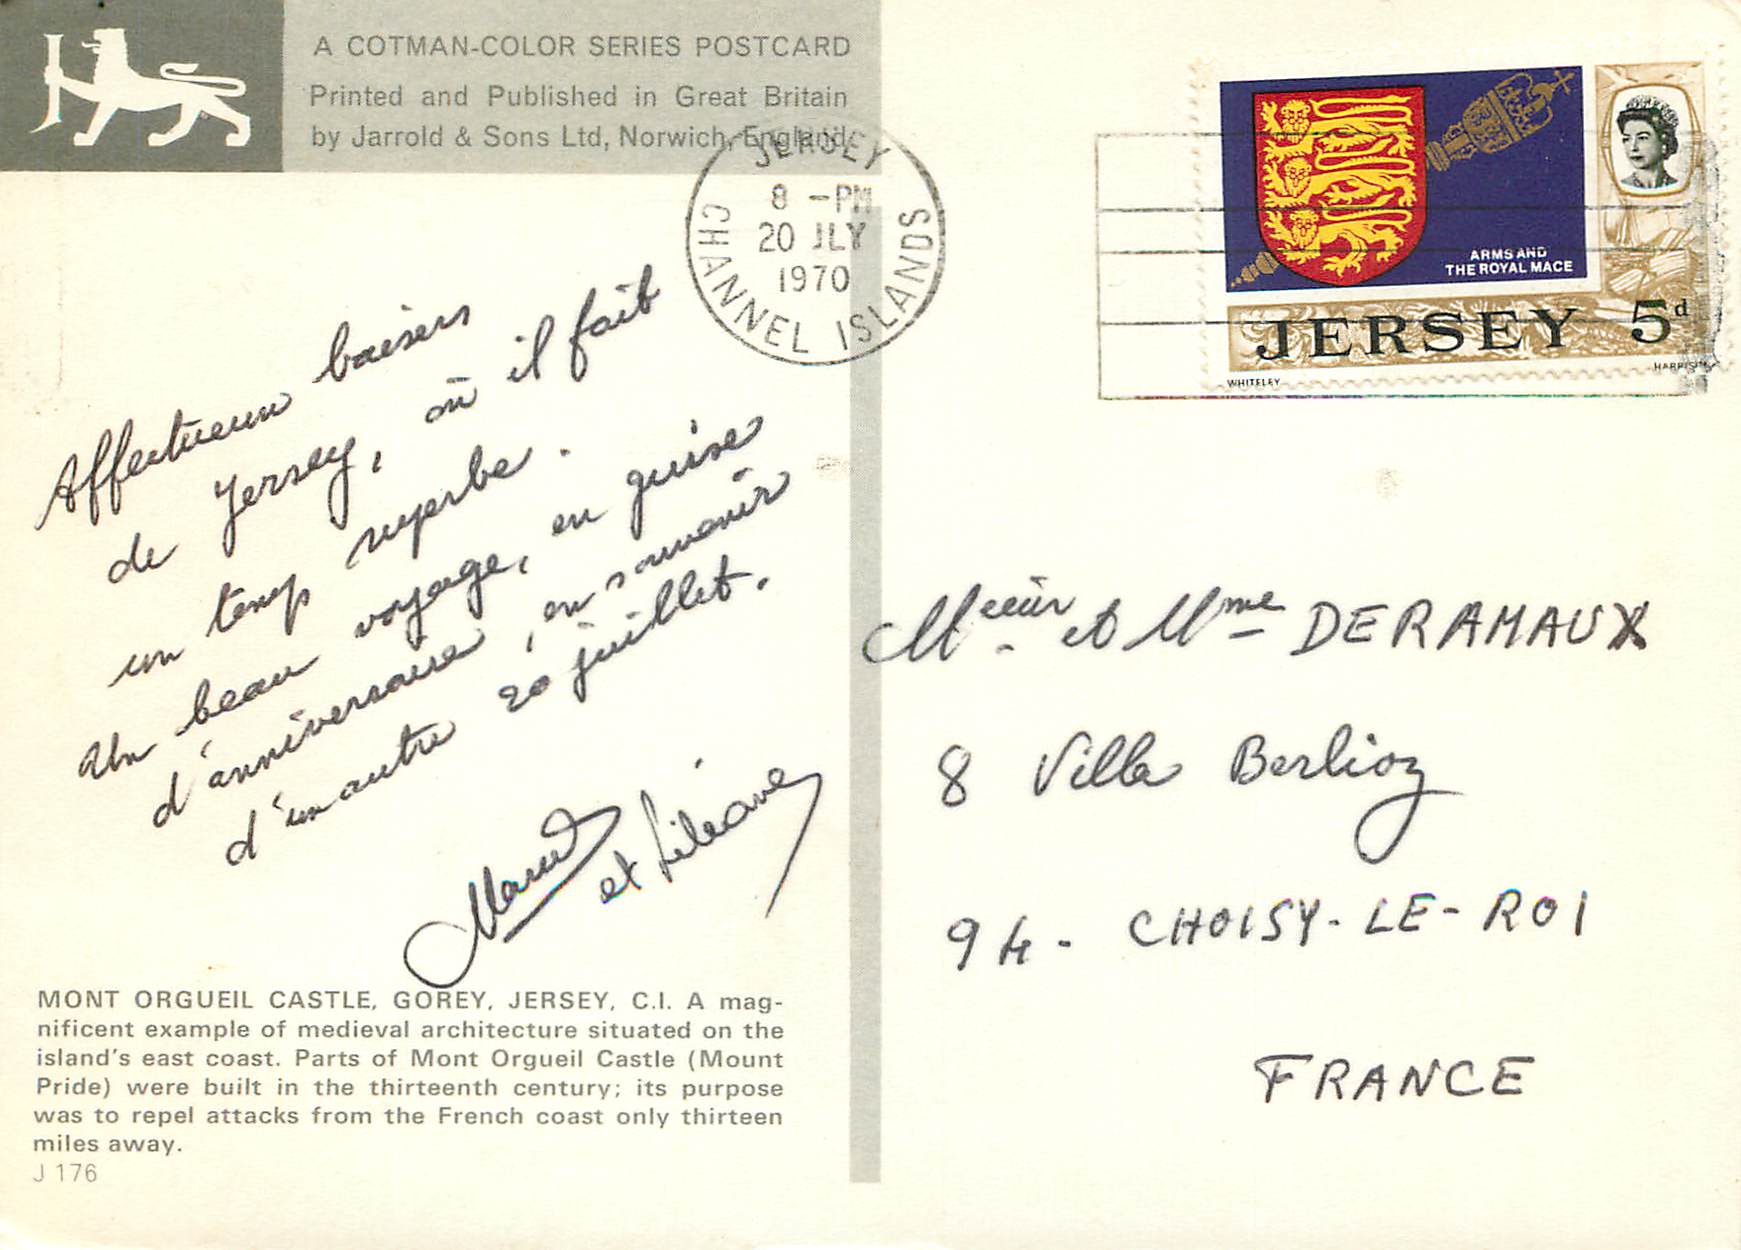 A COTMAN-COLOR SERIES POSTCARD
Printed and Published in Great Britain
by Jarrold & Sons Ltd, Norwich, England.
JERSEY
8 - PM
20 JLY
1970
CHANNEL ISLANDS
ARMS AND
THE ROYAL MACE
JERSEY 5d
WHITELEY HARRISON
Affectueux baisers
de Jersey, où il fait
un temps superbe.
Un beau voyage, en guise
d'anniversaire, en souvenir
d'un autre 20 juillet.
et Liliane
Mr et Mme DERAMAUX
8 Villa Berlioz
94 - CHOISY-LE-ROI
FRANCE
MONT ORGUEIL CASTLE, GOREY, JERSEY, C.I. A mag-
nificent example of medieval architecture situated on the
island's east coast. Parts of Mont Orgueil Castle (Mount
Pride) were built in the thirteenth century; its purpose
was to repel attacks from the French coast only thirteen
miles away.
J 176